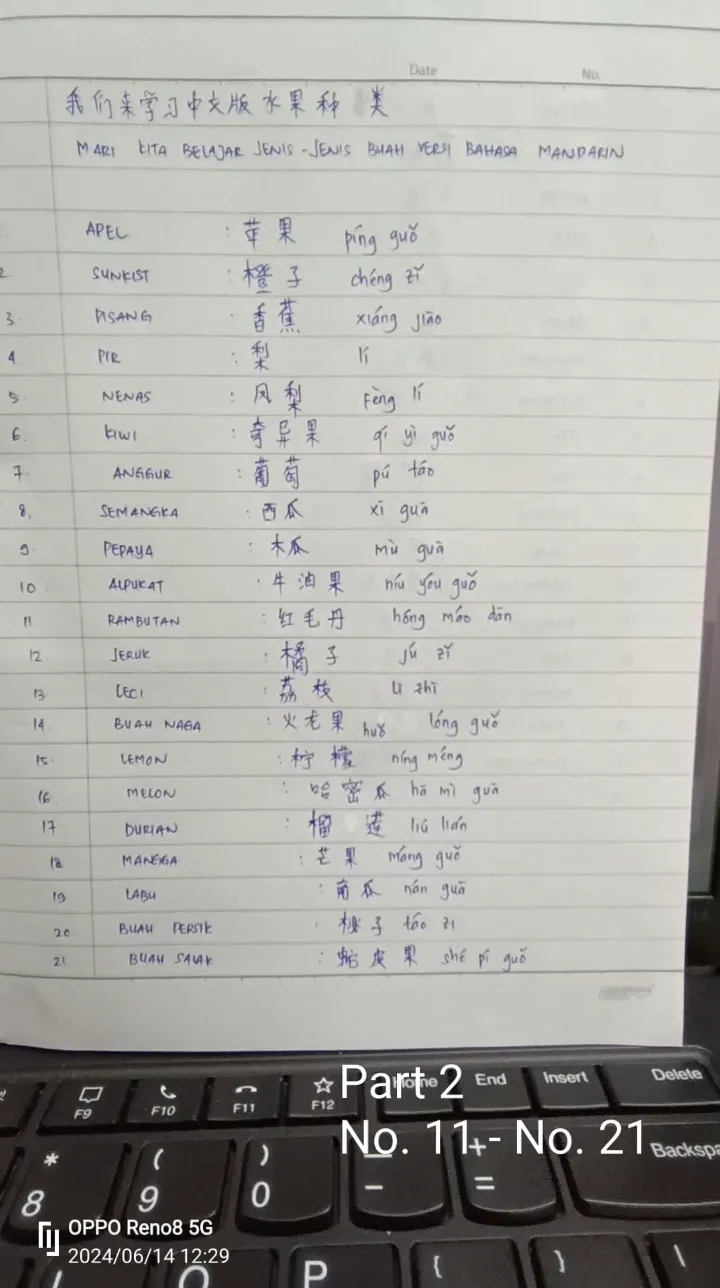 Date No.
我们来学习中文版水果种类
MARI KITA BELAJAR JENIS-JENIS BUAH VERSI BAHASA MANDARIN
APEL : 苹果 píng guǒ
2 SUNKIST : 橙子 chéng zǐ
3 PISANG : 香蕉 xiáng jiāo
4 PIR : 梨 lí
5 NENAS : 凤梨 Fèng lí
6. KIWI : 奇异果 qí yì guǒ
7 ANGGUR : 葡萄 pú táo
8. SEMANGKA : 西瓜 xī guā
9. PEPAYA : 木瓜 mù guā
10 ALPUKAT : 牛油果 níu yóu guǒ
11 RAMBUTAN : 红毛丹 hóng máo dān
12 JERUK : 橘子 jú zǐ
13 LECI : 荔枝 Li zhī
14. BUAH NAGA : 火龙果 huǒ lóng guǒ
15. LEMON : 柠檬 níng méng
16. MELON : 哈密瓜 hā mì guā
17 DURIAN : 榴莲 liú lián
18 MANGGA : 芒果 máng guǒ
19 LABU : 南瓜 nán guā
20. BUAH PERSIK : 桃子 táo zi
21 BUAH SALAK : 蛇皮果 shé pí guǒ
Part 2
No. 11 - No. 21
Home End Insert Delete
F9 F10 F11 F12
Backspa
* ( ) + 
8 9 0 - =
P { } |
OPPO Reno8 5G
2024/06/14 12:29